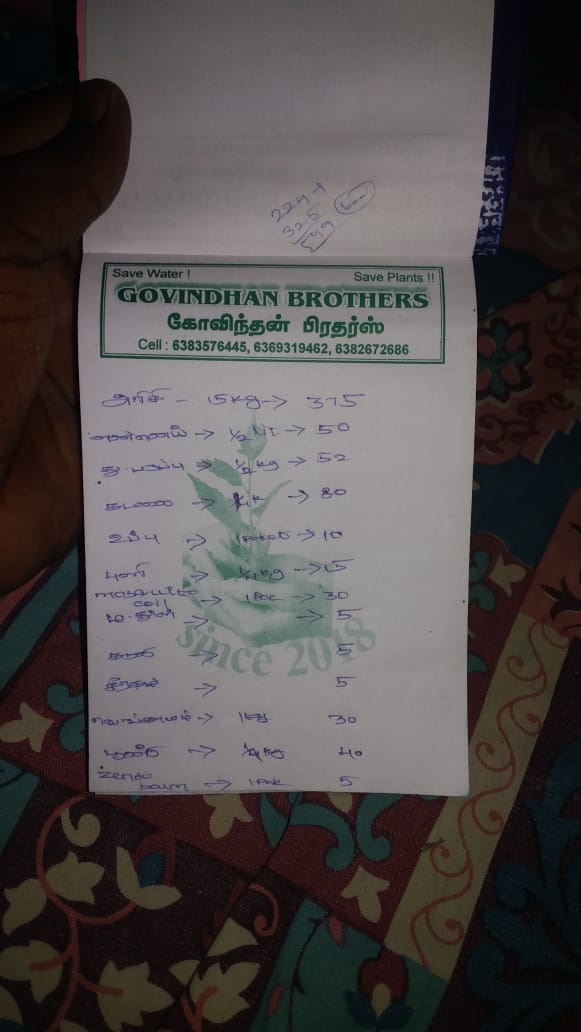 224 +
325
Save Water ! Save Plants !!
GOVINDHAN BROTHERS
கோவிந்தன் பிரதர்ஸ்
Cell : 6383576445, 6369319462, 6382672686
அரிசி - 15 kg -> 375
எண்ணெய் -> 1/2 LIT -> 50
து.பருப்பு -> 1/2 kg -> 52
கடலை -> 80
உப்பு -> 1 Packet -> 10
புளி -> 1/4 kg -> 15
coil -> 1 Pac -> 30
ம.தூள் -> -> 5
-> 5
சீரகம் -> 5
வெங்காயம் -> 1 kg 30
பூண்டு -> 1/4 kg 40
Zendu
balm -> 1 Pac 5
since 2018